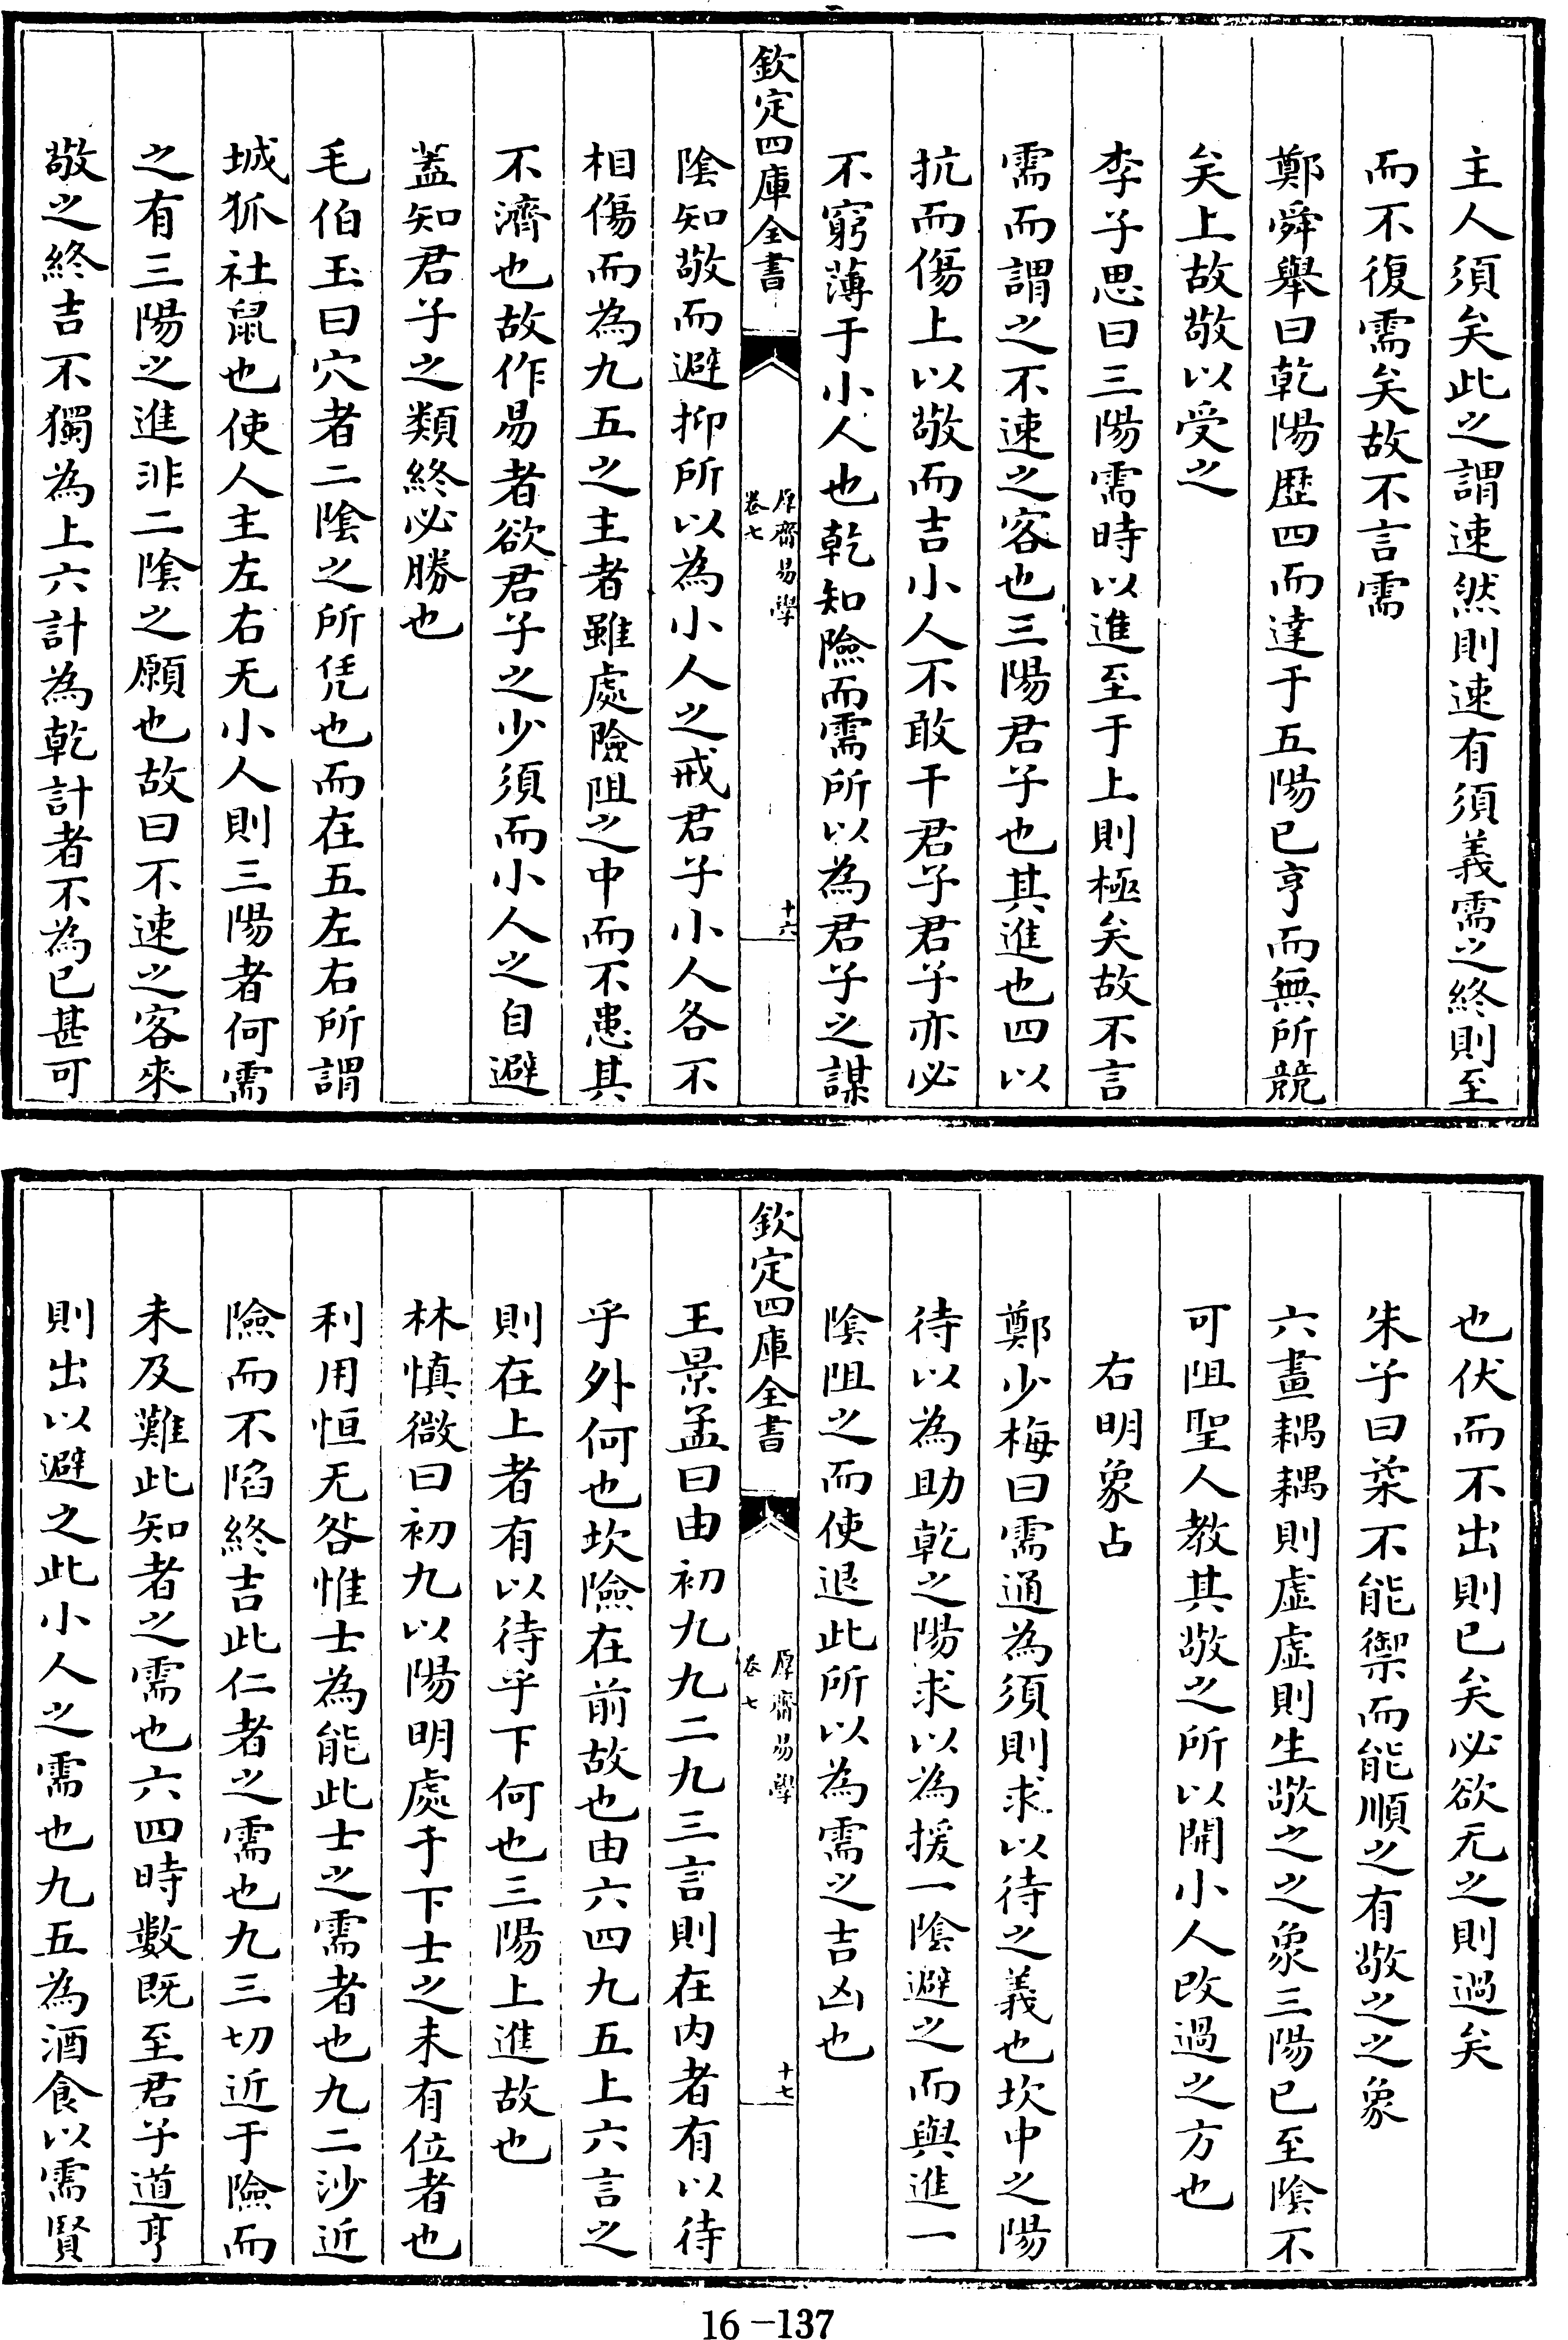 主人須矣此之謂速然則速有須義需之終則至
而不復需矣故不言需
鄭舜舉曰乾陽歷四而達于五陽已亨而無所競
矣上故敬以受之
李子思曰三陽需時以進至于上則極矣故不言
需而謂之不速之客也三陽君子也其進也四以
抗而傷上以敬而吉小人不敢干君子君子亦必
不窮薄于小人也乾知險而需所以為君子之謀
欽定四庫全書
厚齋易學
卷七
十六
陰知敬而避抑所以為小人之戒君子小人各不
相傷而為九五之主者雖處險阻之中而不患其
不濟也故作易者欲君子之少須而小人之自避
蓋知君子之類終必勝也
毛伯玉曰穴者二陰之所凭也而在五左右所謂
城狐社鼠也使人主左右无小人則三陽者何需
之有三陽之進非二陰之願也故曰不速之客來
敬之終吉不獨為上六計為乾計者不為已甚可
也伏而不出則已矣必欲无之則過矣
朱子曰柔不能禦而能順之有敬之之象
六畫耦耦則虛虛則生敬之之象三陽已至陰不
可阻聖人教其敬之所以開小人改過之方也
右明象占
鄭少梅曰需通為須則求以待之義也坎中之陽
待以為助乾之陽求以為援一陰避之而與進一
陰阻之而使退此所以為需之吉凶也
欽定四庫全書
厚齋易學
卷七
十七
王景孟曰由初九九二九三言則在内者有以待
乎外何也坎險在前故也由六四九五上六言之
則在上者有以待乎下何也三陽上進故也
林慎微曰初九以陽明處于下士之未有位者也
利用恒无咎惟士為能此士之需者也九二沙近
險而不陷終吉此仁者之需也九三切近于險而
未及難此知者之需也六四時數既至君子道亨
則出以避之此小人之需也九五為酒食以需賢
16-137